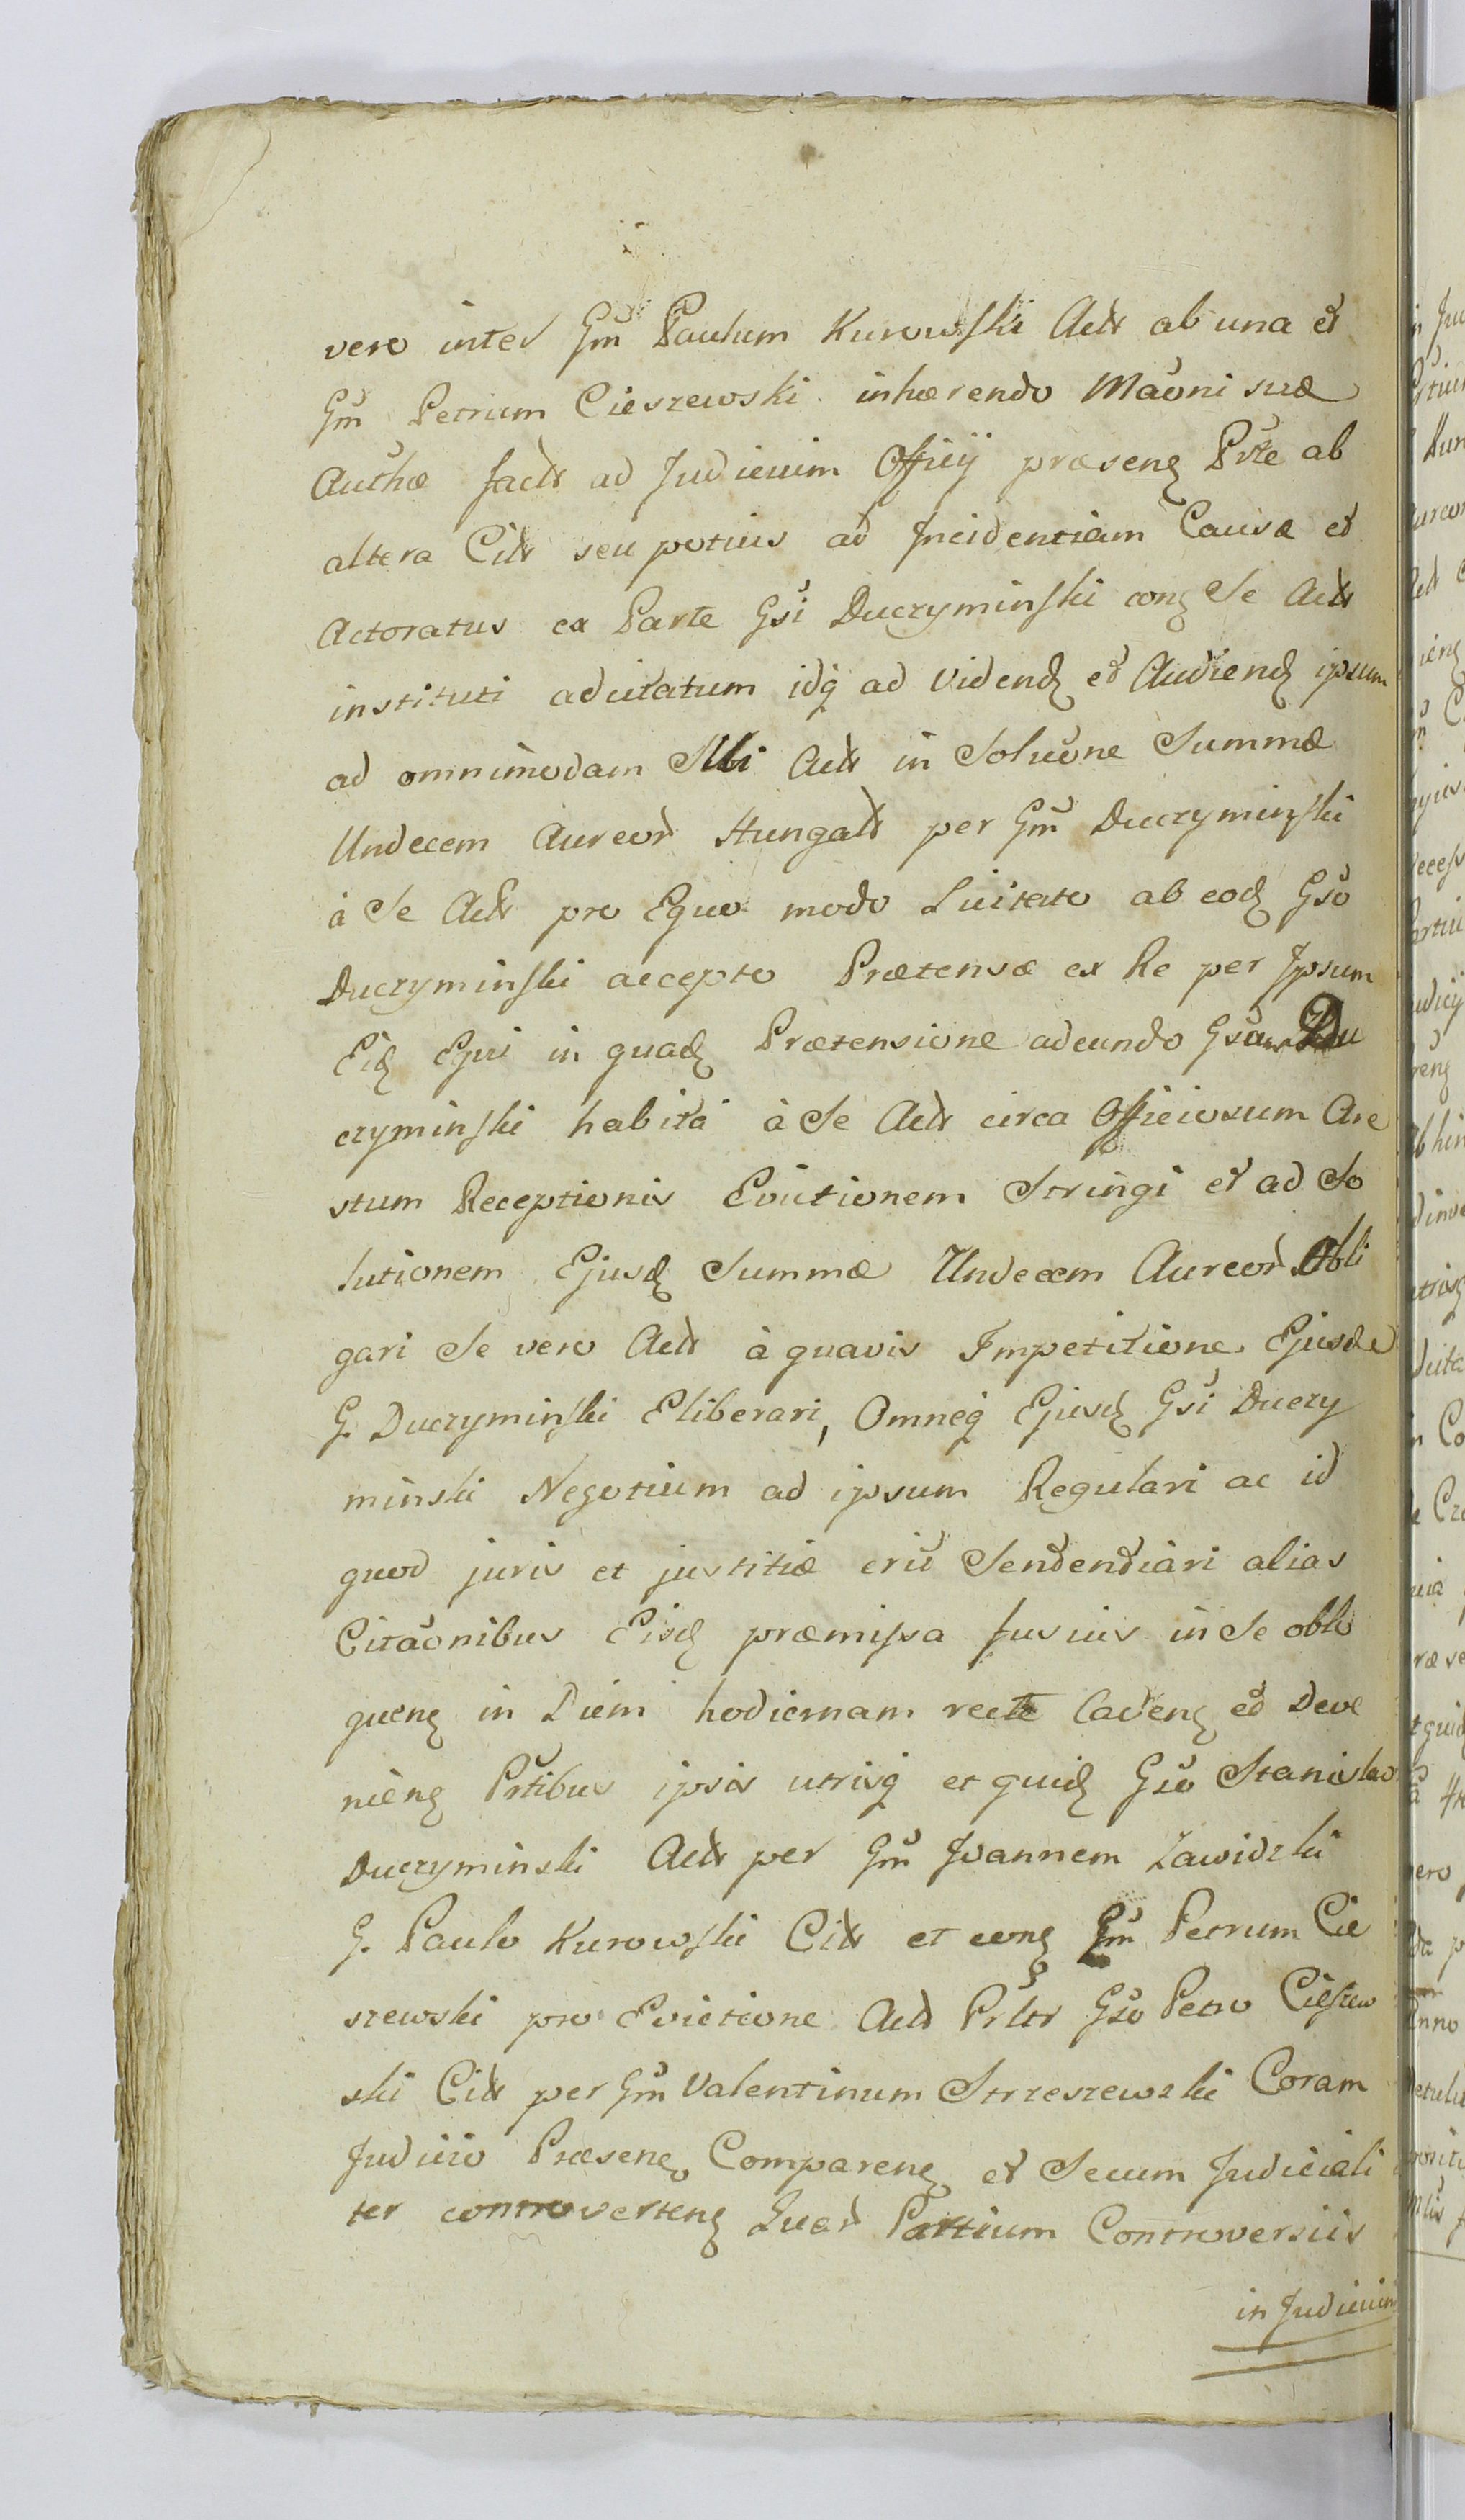 vero inter Gm̃ Paulum Kurowski Actr̃ ab una et
Gm̃ Petrum Cieszewski inhærendo Maõni suæ
Authæ factæ ad Judicium Officij præsenʒ Pr̃te ab
altera Citt̃ seu potius ad Incidentiam Causæ et
Actoratus ex Parte Gsi Duczyminski conʒ Se Actt̃
instituti adcitatum idq̃ ad Videndʒ et Audiendʒ ipsum
ad omnimodam Sibi Actt̃ in Soluõne Summæ
Undecem Aureor̃ Hungalt̃ per Gm̃ Duczyminski
à Se Actt̃ pro Equo modo Licitato ab eodʒ Gso
Duczyminski accepto Prætensæ ex Re per Ipsum
Eidʒ Equi in quadʒ Prætensione adeundo Gsum Du
czyminski habita à Se Actt̃ circa Officiosum Are
stum Receptionis Evictionem Stringi et ad So
lutionem Ejusdʒ Summæ Undecem Aureor̃ Obli
gari Se vero Actt̃ à quavis Impetitione Ejusde
G. Duczyminski Eliberari, Omneq̃ Ejusdʒ Gsi Duczy
minski Negotium ad ipsum Regulari ac id
quod juris et justitiæ erit Sentendiari alias
Citaõnibus Eisdʒ præmissa fusius in Se oblo
quenʒ in Diem hodiernam recte Cadenʒ et Deve
nienʒ Pr̃tibus ipsis utrisq̃ et quidʒ Gso Stanislao
Duczyminski Actt̃ per Gm̃ Joannem Zawidzki
G. Paulo Kurowski Citt̃ et conʒ Gm̃ Petrum Cie
szewski pro Evictione Actt̃ Pr̃ltr Gso Petro Cieszew
ski Citt̃ per Gm̃ Valentinum Strzeszewski Coram
Judicio Præsenʒ Comparenʒ et Secum Judiciali
ter controvertenʒ Quar̃ Partium Controversiis
in Judicium